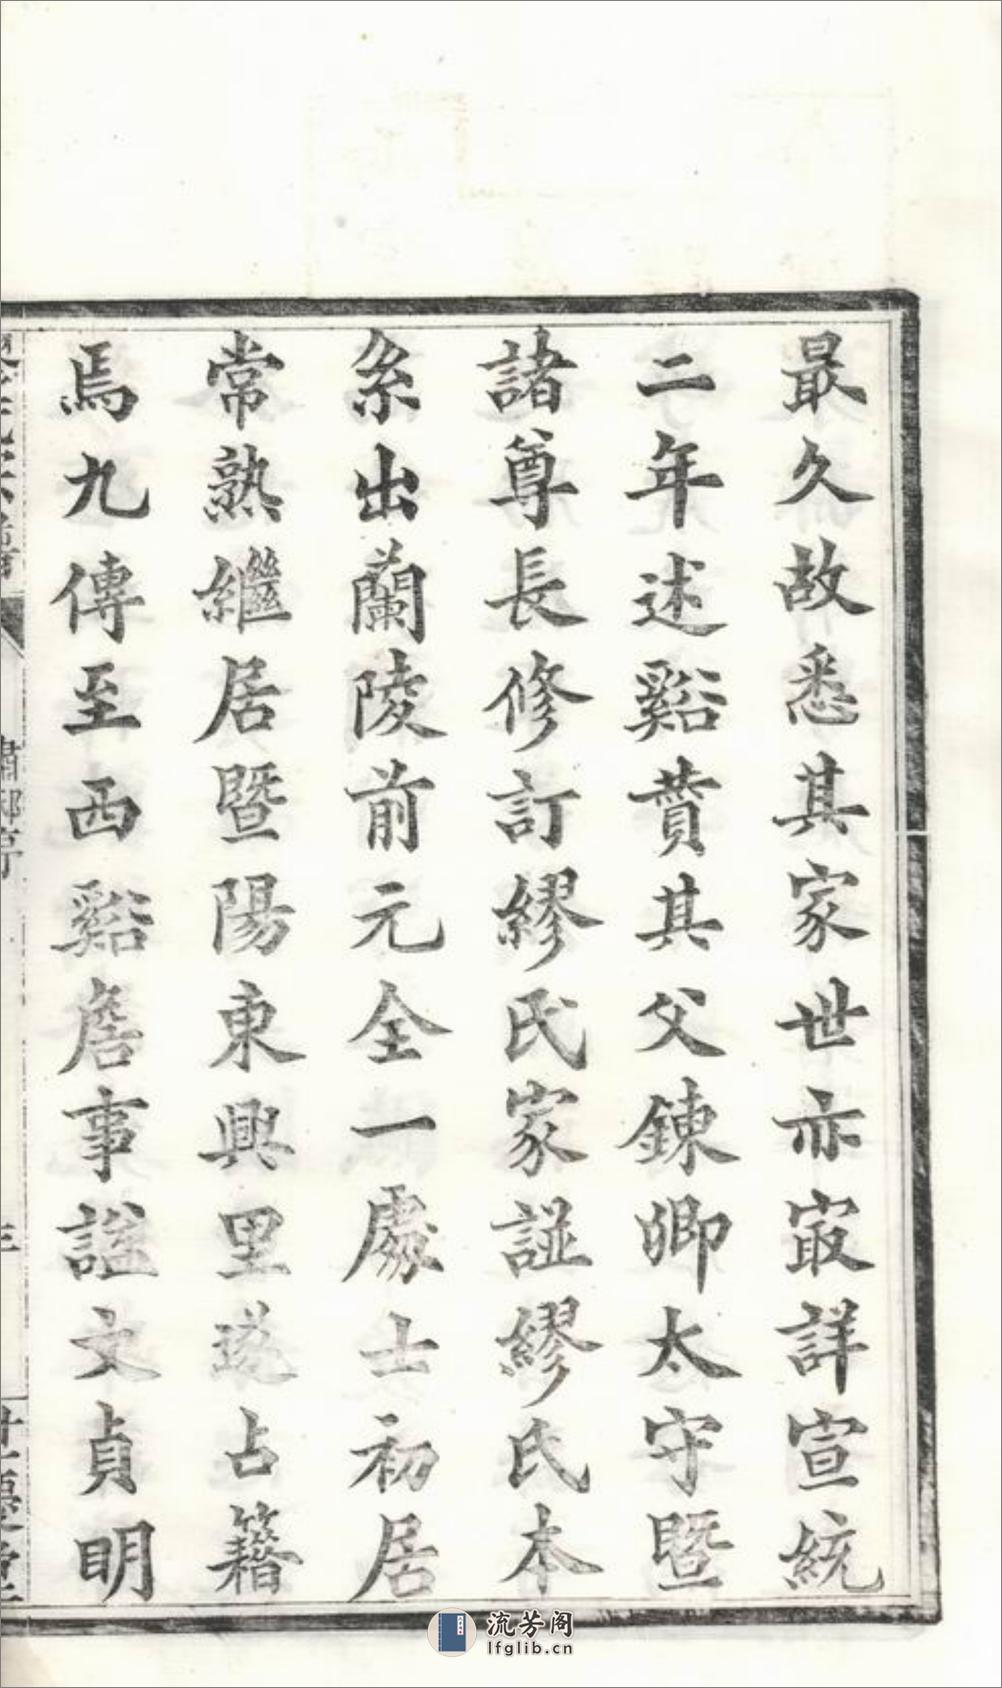 最久故悉其家世亦㝡詳宣統
二年述谿賁其父錬卿太守暨
諸尊長修訂繆氏家諡繆氏本
系出蘭陵前元全一處士初居
常熟繼居暨陽東興里遂占籍
焉九傳至西谿詹事諡文貞明
流芳阁
lfglib.cn